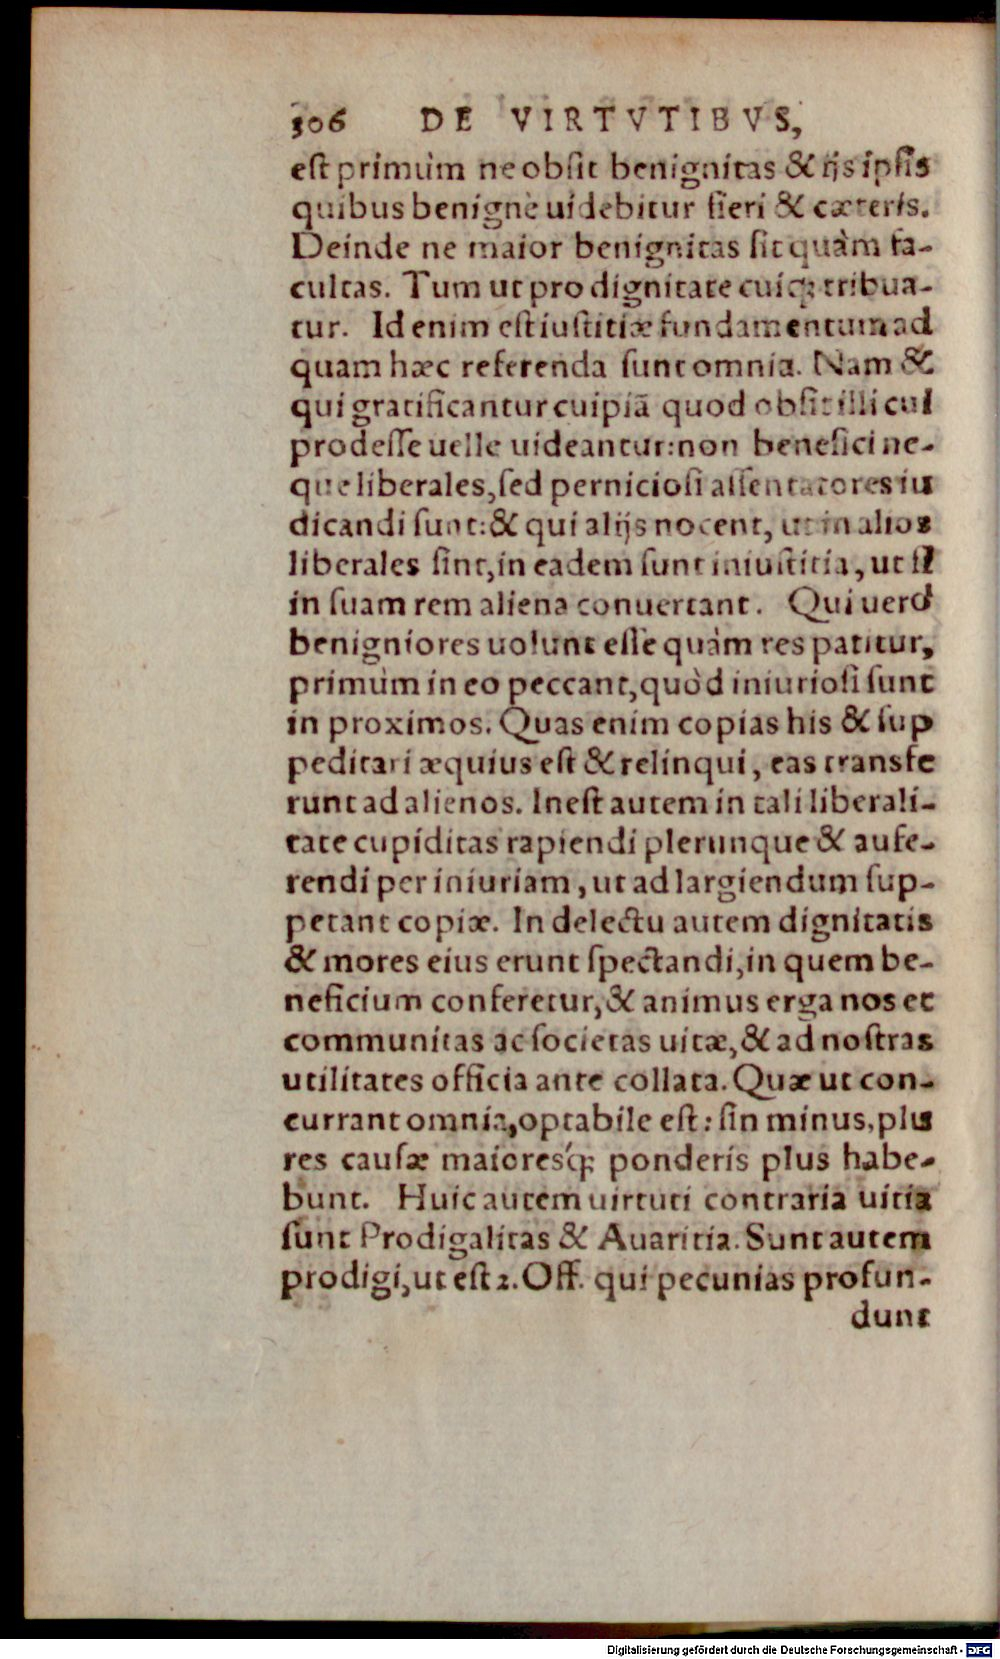 306 DE VIRTVTIBVS,
est primùm ne obsit benignitas & ijs ipsis
quibus benignè uidebitur fieri & cæteris.
Deinde ne maior benignitas sit quàm fa-
cultas. Tum ut pro dignitate cuiq; tribua-
tur. Id enim est iustitiæ fundamentum ad
quam hæc referenda sunt omnia. Nam &
qui gratificantur cuipiã quod obsit illi cui
prodesse uelle uideantur: non benefici ne-
que liberales, sed perniciosi assentatores iu
dicandi sunt: & qui alijs nocent, ut in alios
liberales sint, in eadem sunt iniustitia, ut si
in suam rem aliena conuertant. Qui uerò
benigniores uolunt esse quàm res patitur,
primùm in eo peccant, quòd iniuriosi sunt
in proximos. Quas enim copias his & sup
peditari æquius est & relinqui, eas transfe
runt ad alienos. Inest autem in tali liberali-
tate cupiditas rapiendi plerunque & aufe-
rendi per iniuriam, ut ad largiendum sup-
petant copiæ. In delectu autem dignitatis
& mores eius erunt spectandi, in quem be-
neficium conferetur, & animus erga nos et
communitas ac societas uitæ, & ad nostras
utilitates officia ante collata. Quæ ut con-
currant omnia, optabile est: sin minus, plu
res causæ maioresq́; ponderis plus habe-
bunt. Huic autem uirtuti contraria uitia
sunt Prodigalitas & Auaritia. Sunt autem
prodigi, ut est 2. Off. qui pecunias profun-
dunt
Digitalisierung gefördert durch die Deutsche Forschungsgemeinschaft - DFG